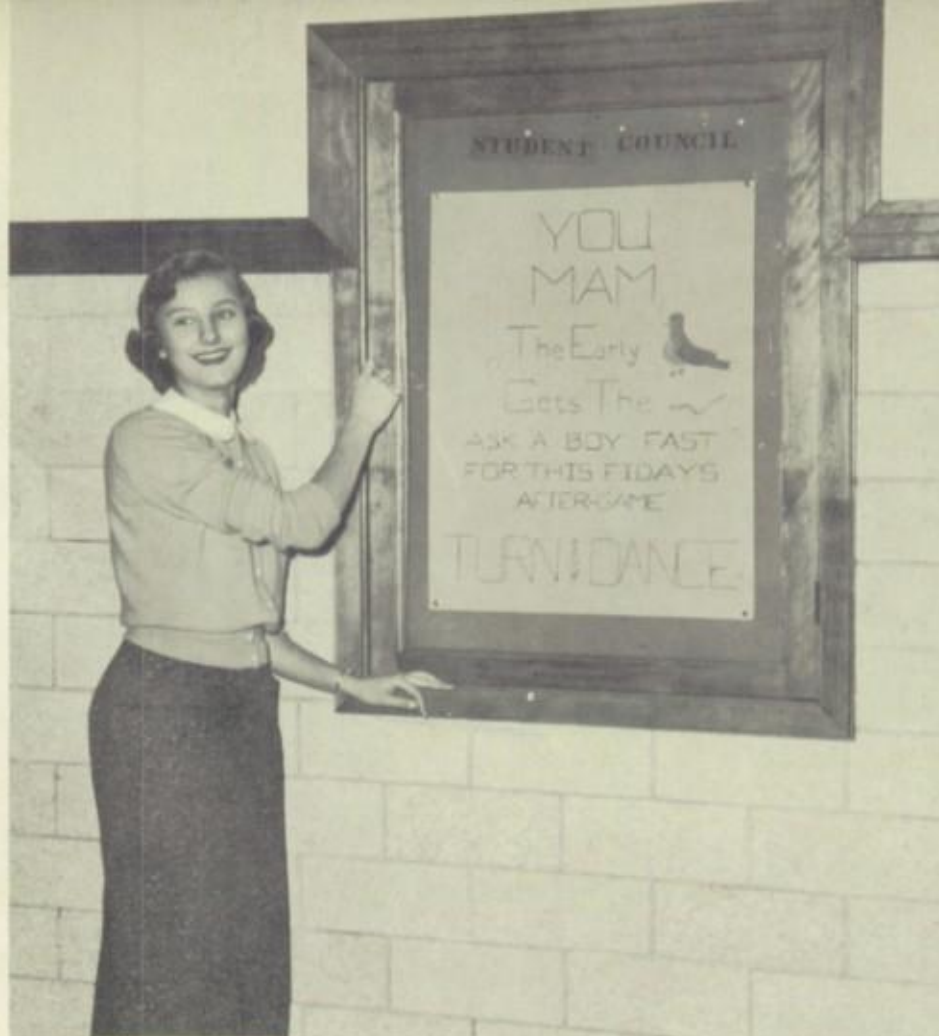 STUDENT COUNCIL
YOU
MAM
The Early
Gets The
ASK A BOY FAST
FOR THIS FIDAY'S
AFTER-GAME
TURN DANCE